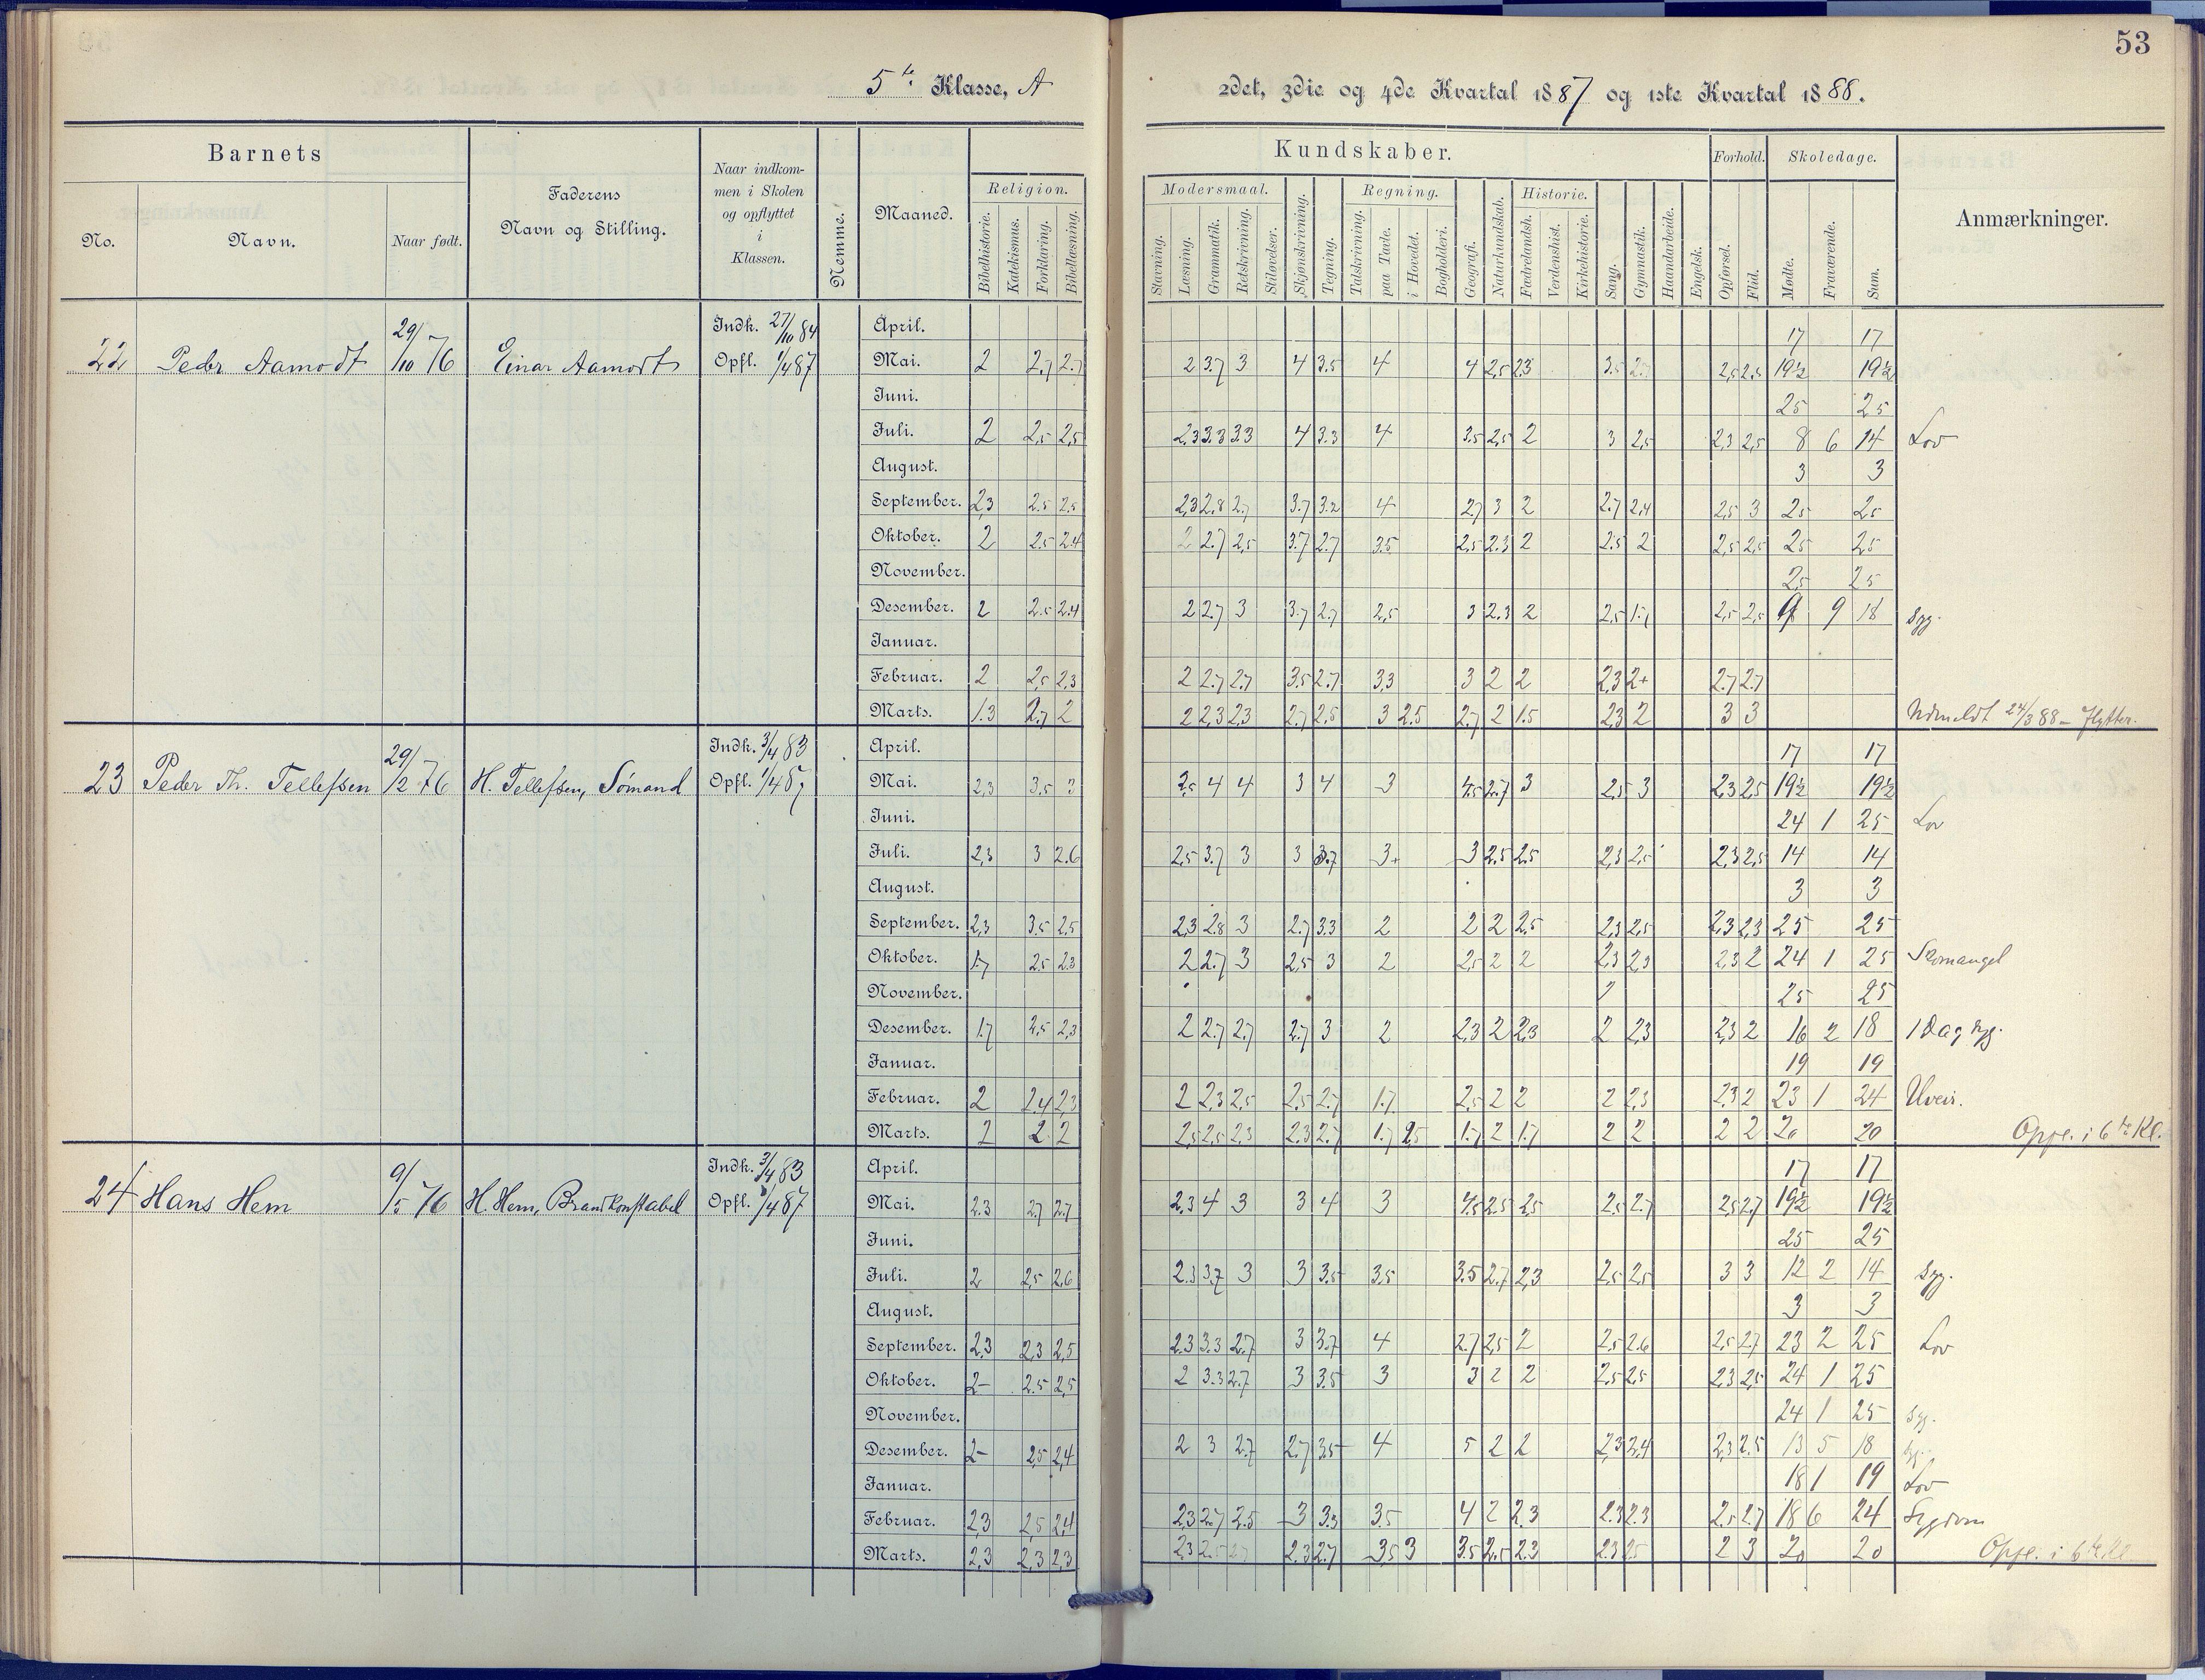 53
5te Klasse, A
2det, 3die og 4de Kvartal 1887 og 1ste Kvartal 1888.
Barnets
No.
Navn.
Naar født.
Faderens
Navn og Stilling.
Naar indkom-
men i Skolen
og opflyttet
i
Klassen.
Nemme.
Maaned.
Kundskaber.
Religion.
Bibelhistorie.
Katekismus.
Forklaring.
Bibellæsning.
Modersmaal.
Stavning.
Læsning.
Grammatik.
Retskrivning.
Stiløvelser.
Skjønskrivning.
Tegning.
Regning.
Talskrivning.
paa Tavle.
i Hovedet.
Bogholderi.
Geografi.
Naturkundskab.
Historie.
Fædrelandsh.
Verdenshist.
Kirkehistorie.
Sang.
Gymnastik.
Haandarbeide.
Engelsk.
Forhold.
Opførsel.
Flid.
Skoledage.
Mødte.
Fraværende.
Sum.
Anmærkninger.
22 Peder Aamodt 29/10 76 Einar Aamodt Indk. 27/10 84 Opfl. 1/4 87
April. 17 17
Mai. 2 2.7 2.7 2 3.7 3 4 3.5 4 4 2.5 2.3 3.5 2.7 2.5 2.5 19½ 19½
Juni. 25 25
Juli. 2 2.5 2.5 2.3 3.3 3.3 4 3.3 4 3.5 2.5 2 3 2.5 2.3 2.5 8 6 14 Lov
August. 3 3
September. 2.3 2.5 2.5 2.3 2.8 2.7 3.7 3.2 4 2.7 3 2 2.7 2.4 2.5 3 25 25
Oktober. 2 2.5 2.4 2 2.7 2.5 3.7 2.7 3.5 2.5 2.3 2 2.5 2 2.5 2.5 25 25
November. 25 25
Desember. 2 2.5 2.4 2 2.7 3 3.7 2.7 2.5 3 2.3 2 2.5 1.7 2.5 2.5 9 9 18 Syg.
Januar.
Februar. 2 2.5 2.3 2 2.7 2.7 3.5 2.7 3.3 3 2 2 2.3 2+ 2.7 2.7
Marts. 1.3 2.7 2 2 2.3 2.3 2.7 2.5 3 2.5 2.7 2 1.5 2.3 2 3 3 Udmeldt 24/3 88 – Flytter.
23 Peder Th. Tellefsen 29/2 76 H. Tellefsen, Sømand Indk. 3/4 83 Opfl. 1/4 87
April. 17 17
Mai. 2.3 3.5 3 2.5 4 4 3 4 3 4.5 2.7 3 2.5 3 2.3 2.5 19½ 19½
Juni. 24 1 25 Lov
Juli. 2.3 3 2.6 2.5 3.7 3 3 3.7 3+ 3 2.5 2.5 2.3 2.5 2.3 2.5 14 14
August. 3 3
September. 2.3 3.5 2.5 2.3 2.8 3 2.7 3.3 2 2 2 2.5 2.3 2.5 2.3 2.3 25 25
Oktober. 1.7 2.5 2.3 2 2.7 3 2.5 3 2 2.5 2 2 2.3 2.3 2.3 2 24 1 25 Skomangel
November. 25 25
Desember. 1.7 2.5 2.3 2 2.7 2.7 2.7 3 2 2.3 2 2.3 2 2.3 2.3 2 16 2 18 1 Dag syg.
Januar. 19 19
Februar. 2 2.4 2.3 2 2.3 2.5 2.5 2.7 1.7 2.5 2 2 2 2.3 2.3 2 23 1 24 Uveir.
Marts. 2 2 2 2.5 2.5 2.3 2.3 2.7 1.7 2.5 1.7 2 1.7 2 2 2 2 20 20 Oppl. i 6te Kl.
24 Hans Hem 9/5 76 H. Hem, Brandkonstabel Indk. 3/4 83 Opfl. 1/4 87
April. 17 17
Mai. 2.3 2.7 2.7 2.3 4 3 3 4 3 4.5 2.5 2.5 2.5 2.7 2.5 2.7 19½ 19½
Juni. 25 25
Juli. 2 2.5 2.6 2.3 3.7 3 3 3.5 3.5 3.5 2.7 2.3 2.5 2.5 3 3 12 2 14 Syg.
August. 3 3
September. 2.3 2.3 2.5 2.3 3.3 2.7 3 3.7 4 2.7 2.5 2 2.5 2.6 2.5 2.7 23 2 25 Lov
Oktober. 2- 2.5 2.5 2 3.3 2.7 3 3.5 3 3 2 2 2.5 2.5 2.3 2.5 24 1 25
November. 24 1 25 Syg.
Desember. 2- 2.5 2.4 2 3 2.7 2.7 3.5 4 5 2 2 2.3 2.4 2.3 2.5 13 5 18 Syg.
Januar. 18 1 19 Lov
Februar. 2.3 2.5 2.4 2.3 2.7 2.5 3 3.3 3.5 4 2 2.3 2.3 2.3 2.5 2.7 18 6 24 Sygdom
Marts. 2.3 2.3 2.3 2.3 2.5 2.7 2.3 2.7 3.5 3 3.5 2.5 2.3 2.3 2.5 2 3 20 20 Oppl. i 6te Kl.